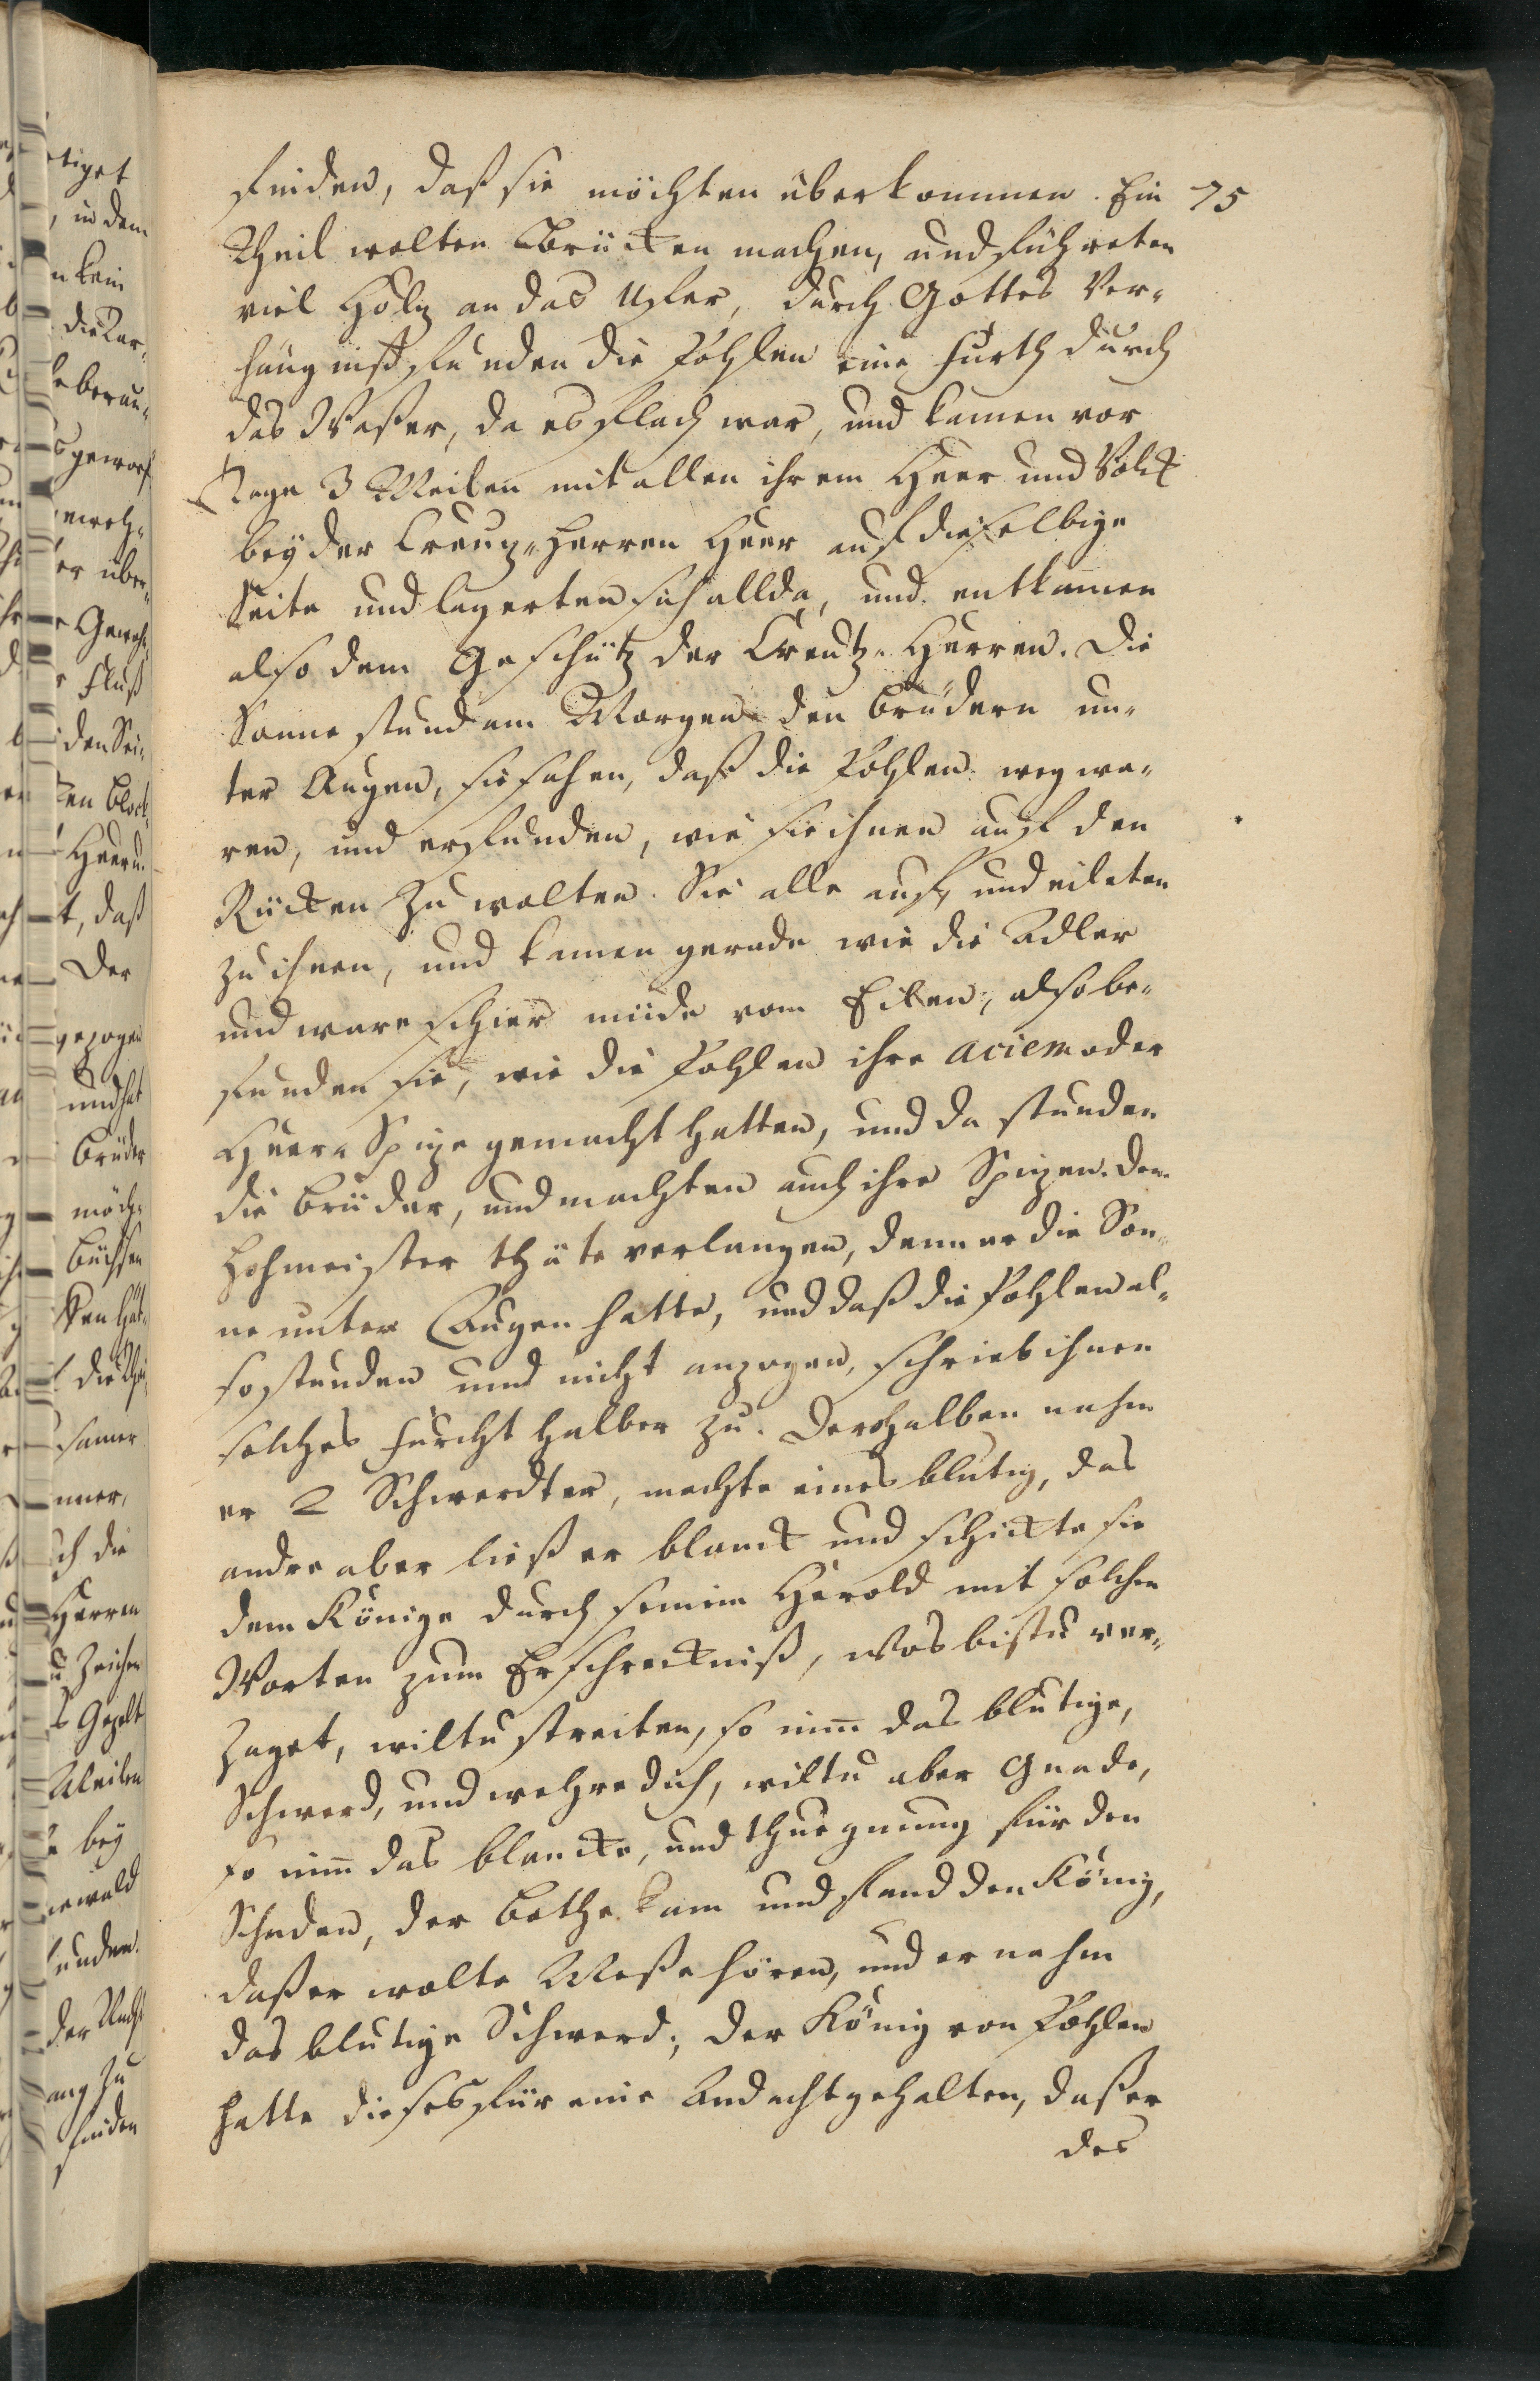 finden, daß sie möchten überkommen. Ein 75
Theil wolten Brücken machen, und führeten
viel Holtz an das Ufer, durch Gottes Ver-
hängniß funden die Pohlen eine Furth durch
das Waßer, da es flach war, und kamen vor
Tage 3 Meilen mit allen ihrem Heer und Volck
bey der Creutz-Herren Heer auf dieselbige
Seite und lagerten sich allda, und entkamen
also dem Geschütz der Creutz-Herren. Die
Sonne stund am Morgen den Brüdern un-
ter Augen, sie sahen, daß die Pohlen weg wa-
ren, und erfunden, wie sie ihnen auf den
Rücken zu wolten. Sie alle auf, und eileten
zu ihnen, und kamen gerade wie die Adler
und waren schier müde vom Eilen, also be-
funden sie, wie die Pohlen ihre aciem oder
Heer-Spize gemacht hatten, und da stunden
die Brüder, und machten auch ihre Spizen. Dem
Hohmeister thäte verlangen, denn er die Son-
ne unter Augen hatte, und daß die Pohlen al-
so stunden und nicht anzogen, schrieb ihnen
solches Furcht halber zu. Derohalben nahm
er 2 Schwerdter, machte eines blutig, das
andre aber ließ er blanck und schickte sie
dem Könige durch seinen Herold mit solchen
Worten zum Erschreckniß, Was bistu ver-
zaget, wiltu streiten, so nim̄ das blutige,
Schwerd, und wehre dich, wiltu aber Gnade,
so nim̄ das blancke, und thue gnung für den
Schaden, der Bothe kam und fand den König,
daß er wolte Meße hören, und er nahm
das blutige Schwerd; der König von Pohlen
hatte dieses für eine Andacht gehalten, daß er
des